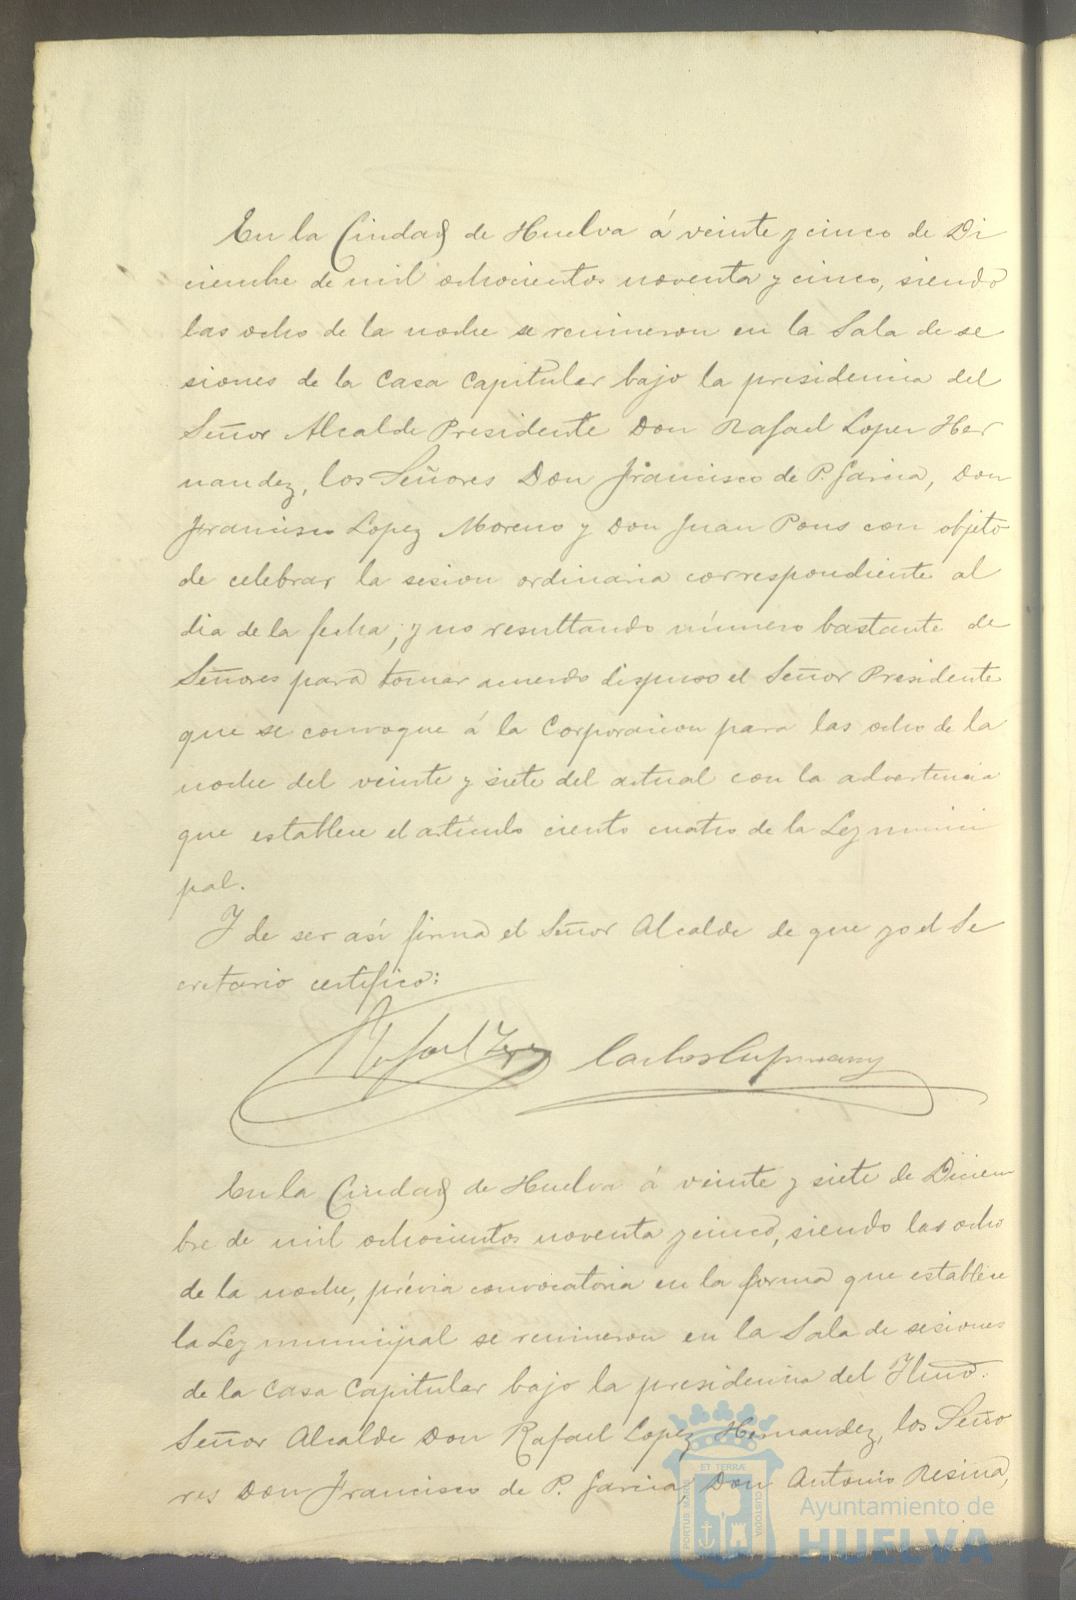 En la Ciudad de Huelva á veinte y cinco de Di
ciembre de mil ochocientos noventa y cinco, siendo
las ocho de la noche se reunieron en la Sala de se
siones de la Casa Capitular bajo la presidencia del
Señor Alcalde Presidente Don Rafael Lopez Her
nandez, los Señores Don Francisco de P. Garcia, Don
Francisco Lopez Moreno y Don Juan Pons con objeto
de celebrar la sesion ordinaria correspondiente al
dia de la fecha; y no resultando número bastante de
Señores para tomar acuerdo dispuso el Señor Presidente
que se convoque á la Corporacion para las ocho de la
noche del veinte y siete del actual con la advertencia
que establece el articulo ciento cuatro de la Ley munici
pal.
Y de ser así firma el Señor Alcalde de que yo el Se
cretario certifico:
Rafael Lopez Carlos
En la Ciudad de Huelva á veinte y siete de Diciem
bre de mil ochocientos noventa y cinco, siendo las ocho
de la noche, prévia convocatoria en la forma que establece
la Ley municipal se reunieron en la Sala de sesiones
de la Casa Capitular bajo la presidencia del Iltmo.
Señor Alcalde Don Rafael Lopez Hernandez, los Seño
res Don Francisco de P. Garcia, Don Antonio Resina,
PORTUS MARIS ET TERRÆ CUSTODIA
Ayuntamiento de
HUELVA